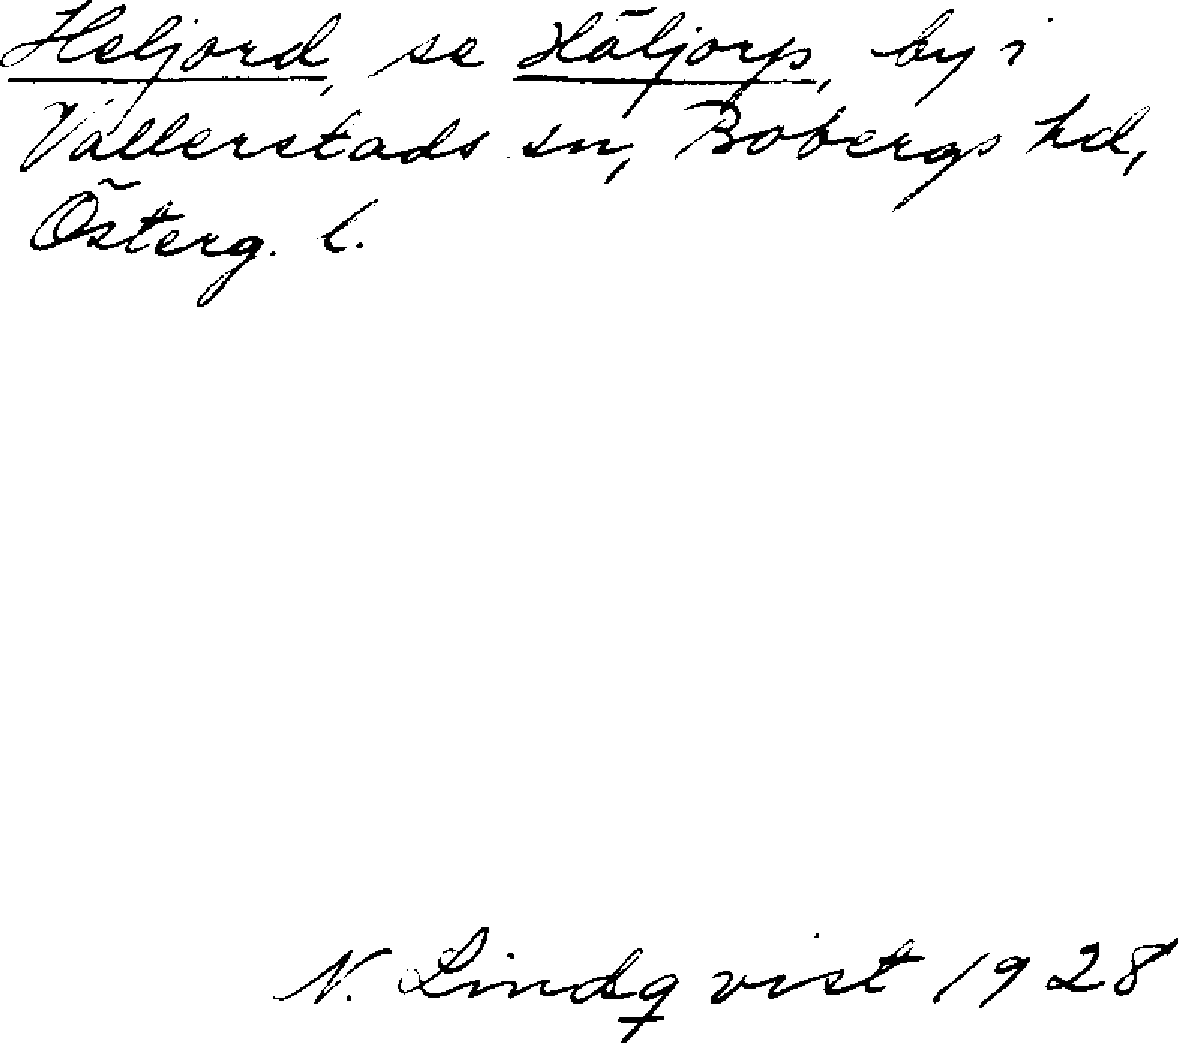 Heljord, se Häljorp, by i
Vallerstads sn, Bobergs hd,
Österg. l.
N. Lindqvist 1928